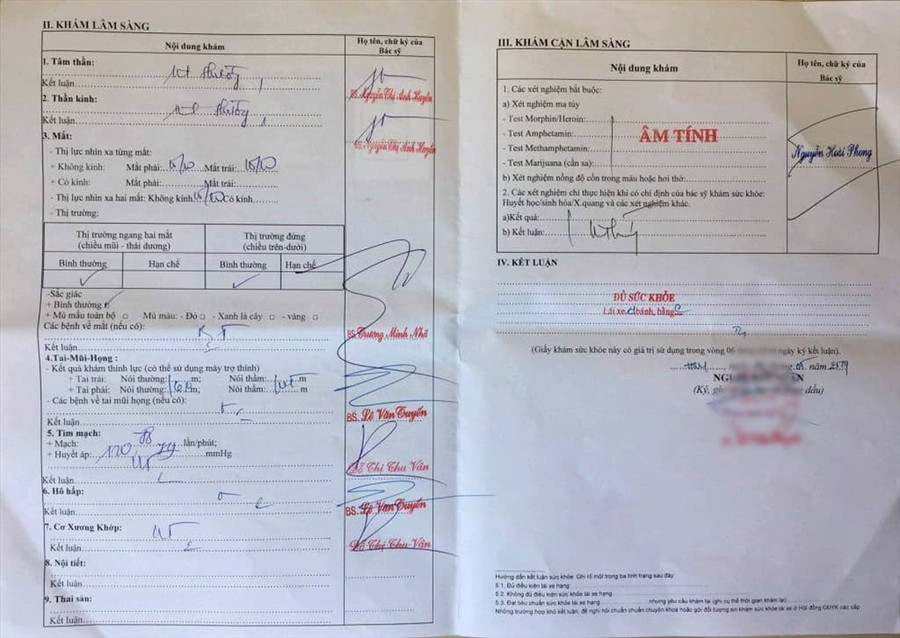 II. KHÁM LÂM SÀNG
Nội dung khám
Họ tên, chữ ký của Bác sỹ
1. Tâm thần:
Kết luận
BS. Nguyễn Thị Anh Huyền
2. Thần kinh:
Kết luận
BS. Nguyễn Thị Anh Huyền
3. Mắt:
- Thị lực nhìn xa từng mắt:
+ Không kính: Mắt phải: 10/10 Mắt trái: 10/10
+ Có kính: Mắt phải: Mắt trái:
- Thị lực nhìn xa hai mắt: Không kính Có kính
- Thị trường:
Thị trường ngang hai mắt (chiều mũi - thái dương)
Thị trường đứng (chiều trên-dưới)
Bình thường Hạn chế Bình thường Hạn chế
-Sắc giác
+ Bình thường
+ Mù mầu toàn bộ □ Mù màu: - Đỏ □ - Xanh lá cây □ - vàng □
Các bệnh về mắt (nếu có):
Kết luận
BS. Trương Minh Nhã
4.Tai-Mũi-Họng :
- Kết quả khám thính lực (có thể sử dụng máy trợ thính)
+ Tai trái: Nói thường: m; Nói thầm: m
+ Tai phải: Nói thường: m; Nói thầm: m
- Các bệnh về tai mũi họng (nếu có):
Kết luận
BS. Lê Văn Truyền
5. Tim mạch:
+ Mạch: lần/phút;
+ Huyết áp: mmHg
Kết luận
Đỗ Thị Thu Vân
6. Hô hấp:
Kết luận
BS. Lê Văn Truyền
7. Cơ Xương Khớp:
Kết luận
Đỗ Thị Thu Vân
8. Nội tiết:
Kết luận
9. Thai sản:
Kết luận
III. KHÁM CẬN LÂM SÀNG
Nội dung khám
Họ tên, chữ ký của Bác sỹ
1. Các xét nghiệm bắt buộc:
a) Xét nghiệm ma túy
- Test Morphin/Heroin:
- Test Amphetamin:
- Test Methamphetamin:
- Test Marijuana (cần sa):
ÂM TÍNH
Nguyễn Hoài Phong
b) Xét nghiệm nồng độ cồn trong máu hoặc hơi thở:
2. Các xét nghiệm chỉ thực hiện khi có chỉ định của bác sỹ khám sức khỏe:
Huyết học/sinh hóa/X.quang và các xét nghiệm khác.
a)Kết quả:
b) Kết luận:
IV. KẾT LUẬN
ĐỦ SỨC KHỎE
Lái xe bánh, hạng C
(Giấy khám sức khỏe này có giá trị sử dụng trong vòng 06 ngày ký kết luận).
05 năm
(Ký, dấu)
Hướng dẫn kết luận sức khỏe: Ghi rõ một trong ba tình trạng sau đây
5.1. Đủ điều kiện lái xe hạng
5.2. Không đủ điều kiện sức khỏe lái xe hạng
5.3. Đạt tiêu chuẩn sức khỏe lái xe hạng nhưng yêu cầu khám lại (ghi cụ thể thời gian khám lại)
Những trường hợp khó kết luận, đề nghị hội chuẩn chuyên khoa hoặc gởi đối tượng xin khám sức khỏe lái xe ở Hội đồng GĐYK các cấp